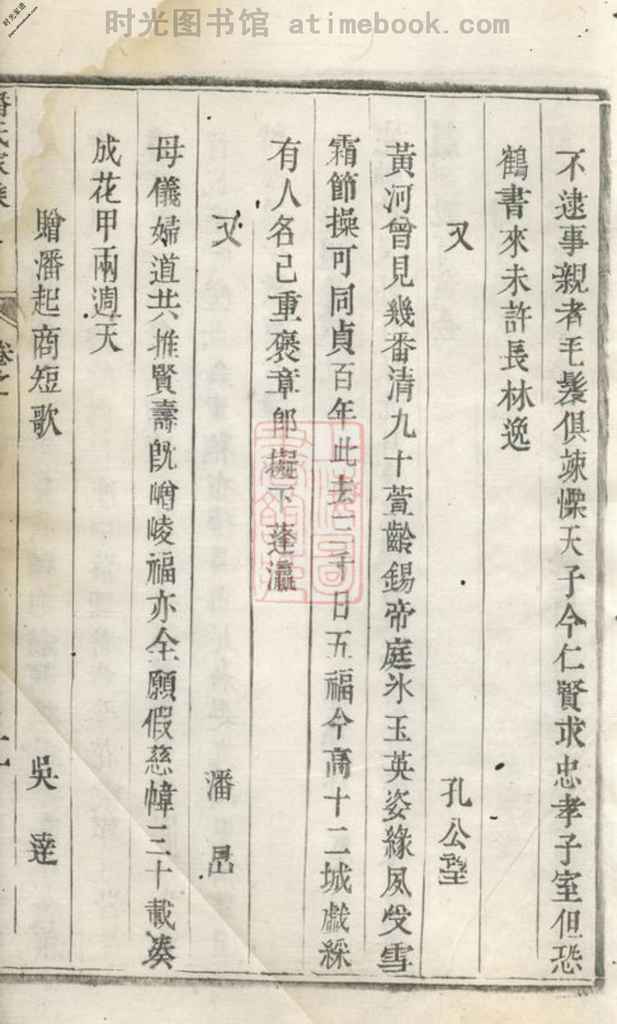 时光图书馆 atimebook.com
不逮事親者毛髮俱竦慄天子今仁賢求忠孝子室但恐
鶴書來未許長林逸
又 孔公
黃河曾見幾番清九十萱齡錫帝庭氷玉英姿緣夙受雪
霜節操可同貞百年此去三千日五福今高十二城戲綵
有人名已重褒章郎擬下蓬瀛
又 潘
母儀婦道共推賢壽既嶒崚福亦全願假慈幃三十載湊
成花甲兩週天
贈潘起商短歌 吳達
潘氏家乘 卷之